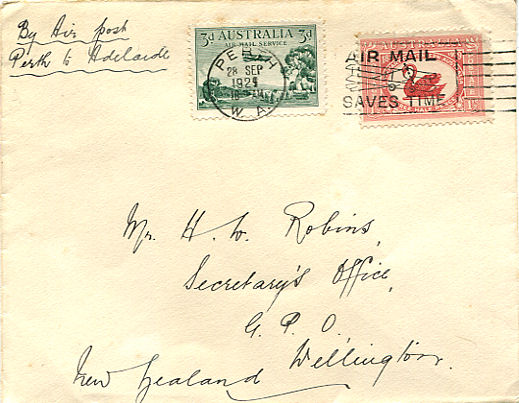 By Air post
Perth to Adelaide
3d AUSTRALIA 3d
AIR MAIL SERVICE
PERTH
28 SEP
1929
W. A.
AUSTRALIA
AIR MAIL
SAVES TIME
Mr. H. W. Robins,
Secretary's Office,
G. P. O.
Wellington.
New Zealand